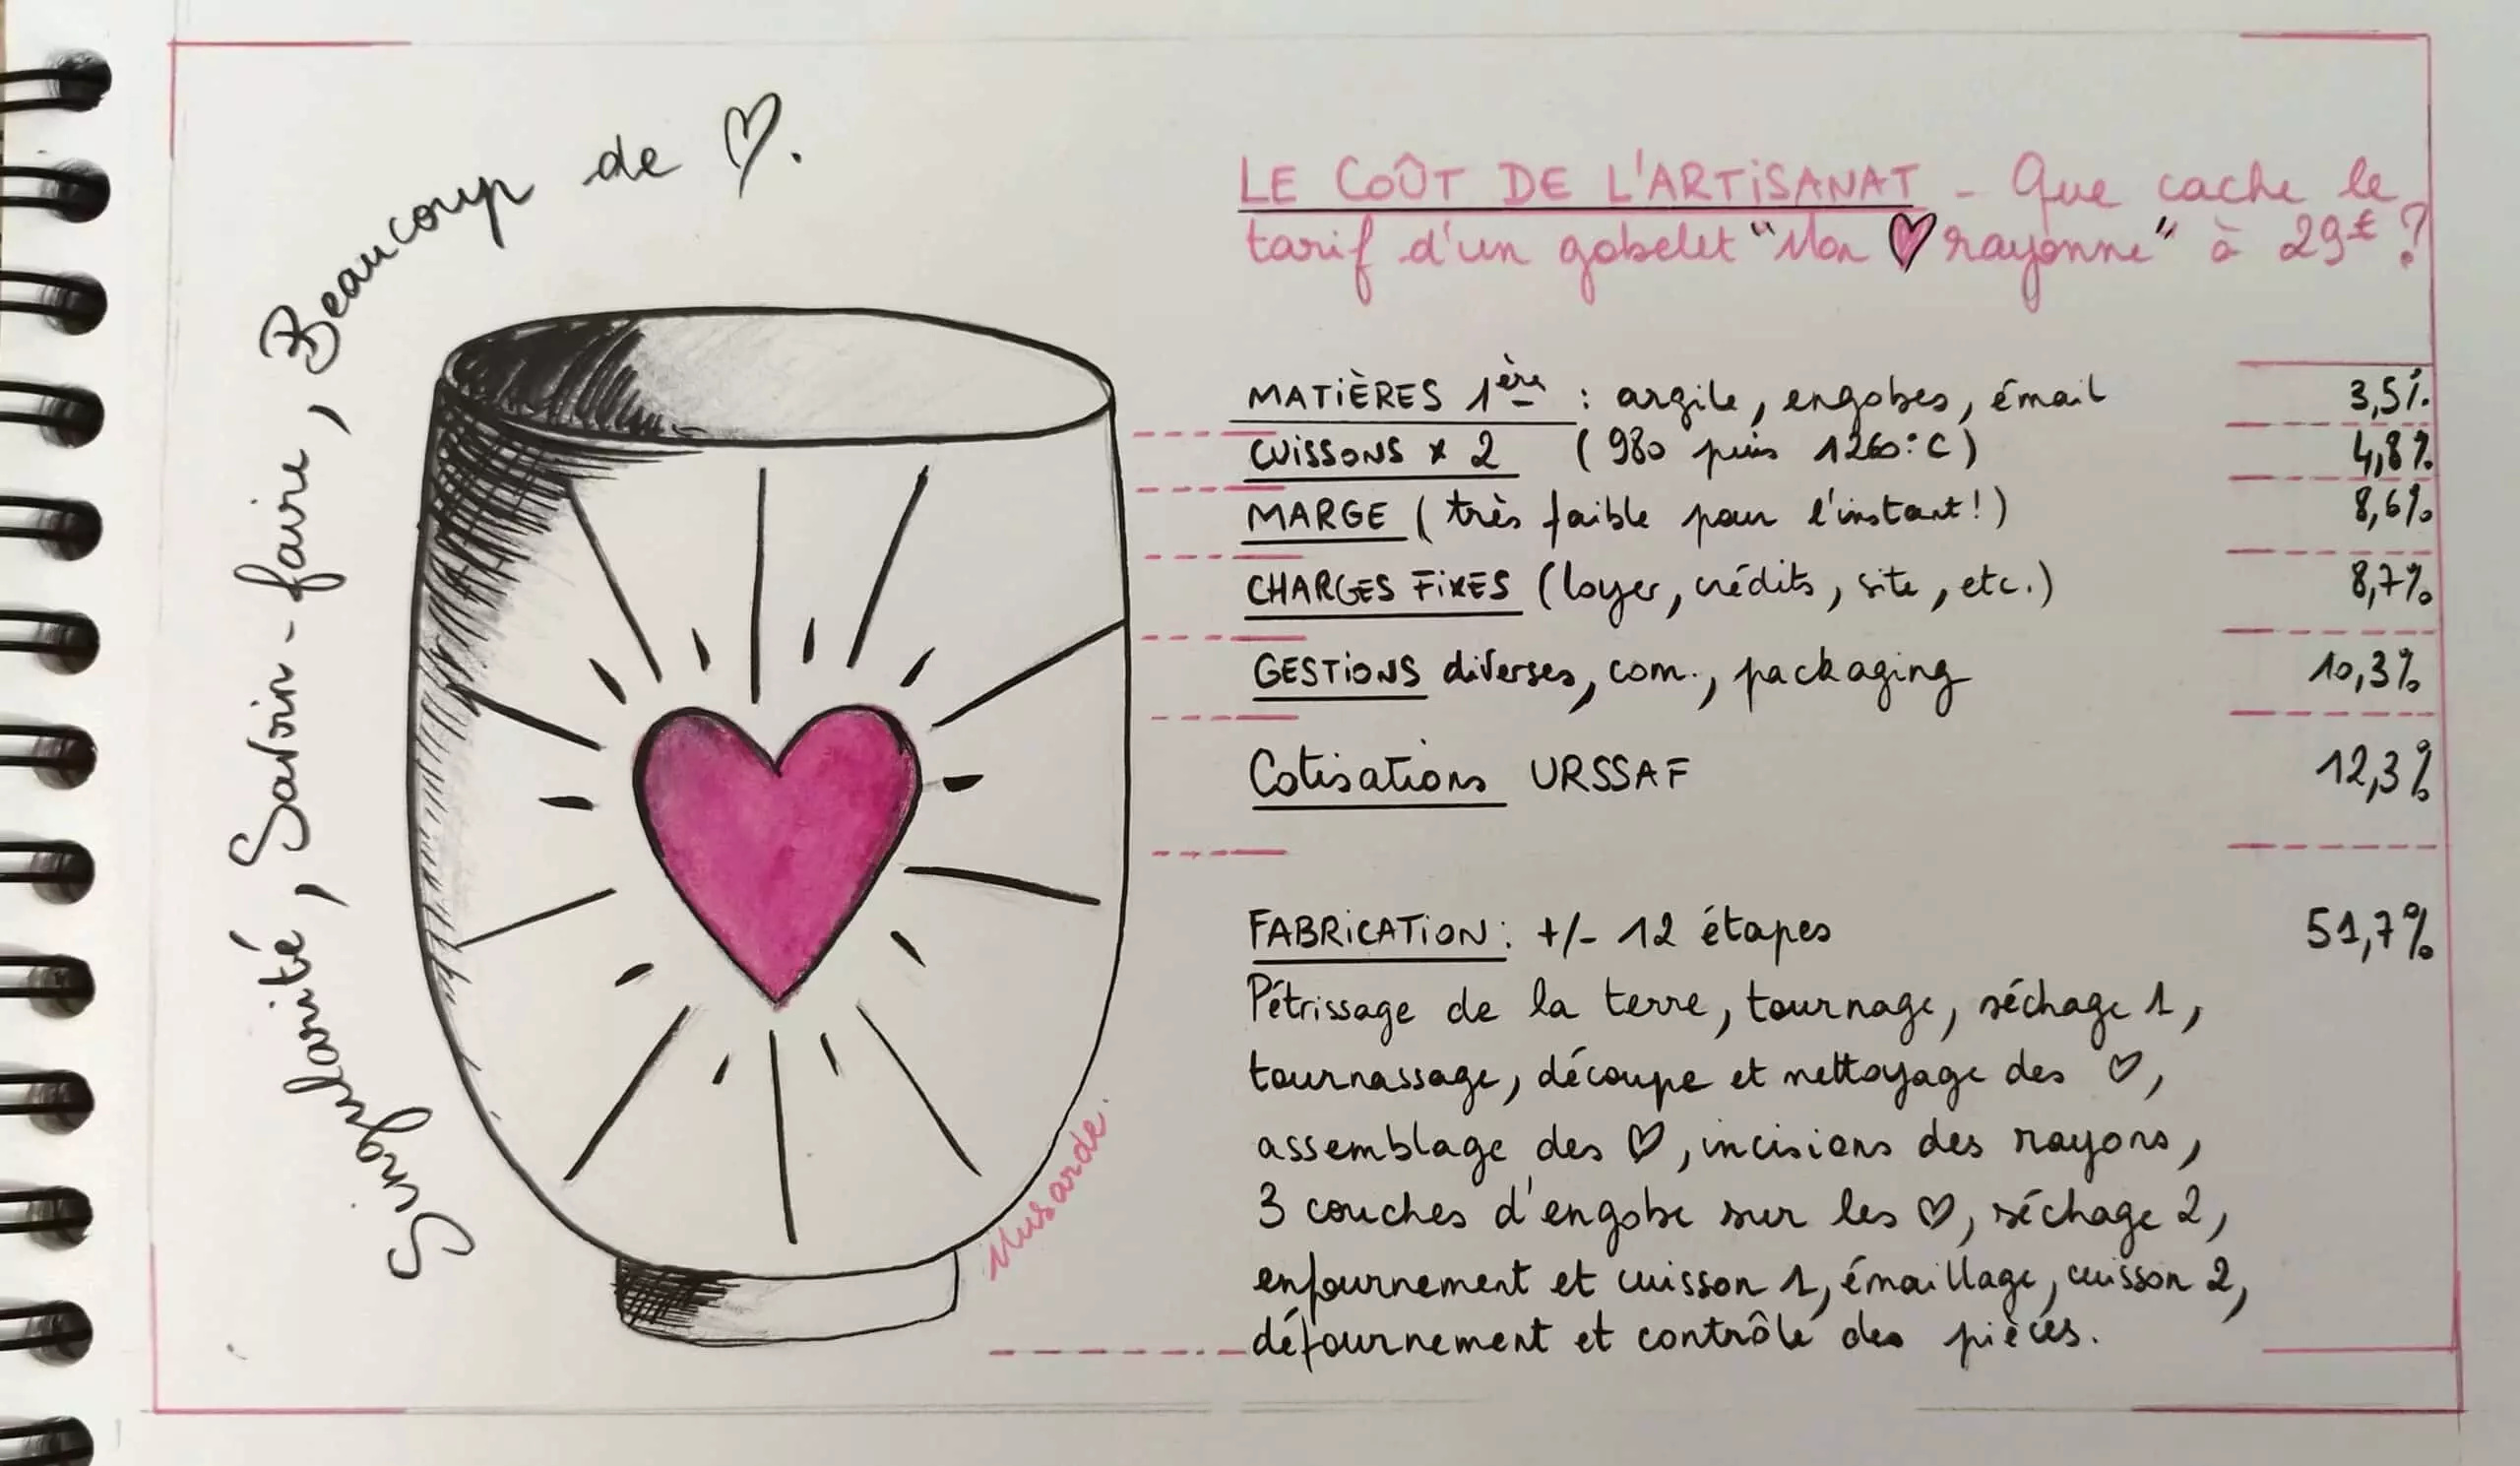 Singularité, Savoir-faire, Beaucoup de ♡.
LE COÛT DE L'ARTISANAT - Que cache le
tarif d'un gobelet "Mon ♡ rayonne" à 29€ ?
MATIÈRES 1ère : argile, engobes, émail 3,5%
CUISSONS x 2 (980 puis 1260°C) 4,8%
MARGE (très faible pour l'instant!) 8,6%
CHARGES FIXES (loyer, crédits, site, etc.) 8,7%
GESTIONS diverses, com., packaging 10,3%
Cotisations URSSAF 12,3%
FABRICATION: +/- 12 étapes 51,7%
Pétrissage de la terre, tournage, séchage 1,
tournassage, découpe et nettoyage des ♡,
assemblage des ♡, incisions des rayons,
3 couches d'engobe sur les ♡, séchage 2,
enfournement et cuisson 1, émaillage, cuisson 2,
défournement et contrôle des pièces.
Musarde.